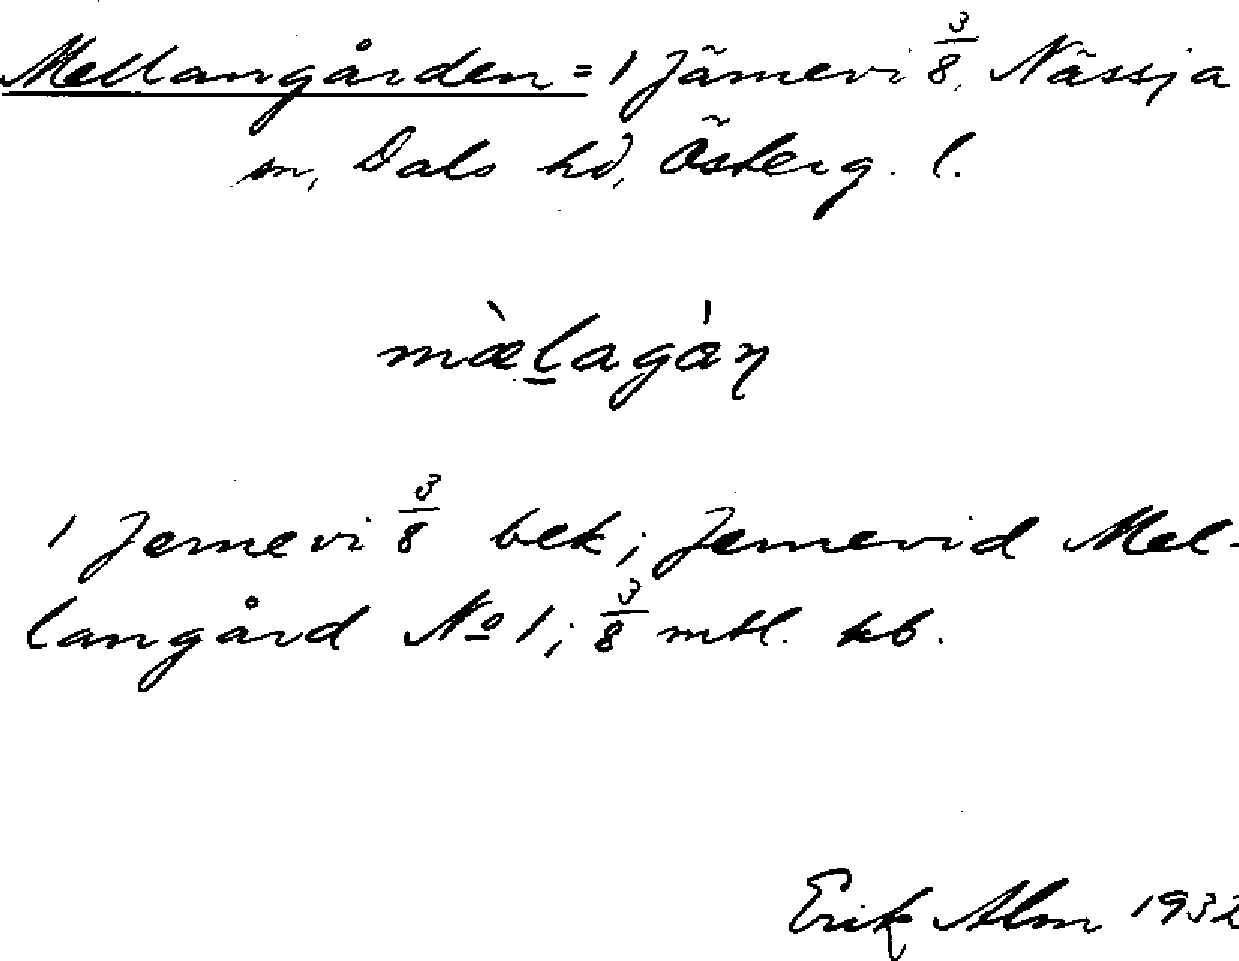 Mellangården = 1 Jämevi 3/8, Nässja
sn, Dals hd, Österg. l.
mæ̀lagȧn
1 Jernevi 3/8 bek; Jernevid Mel-
langård No 1; 3/8 mtl. kb.
Erik Alm 1932